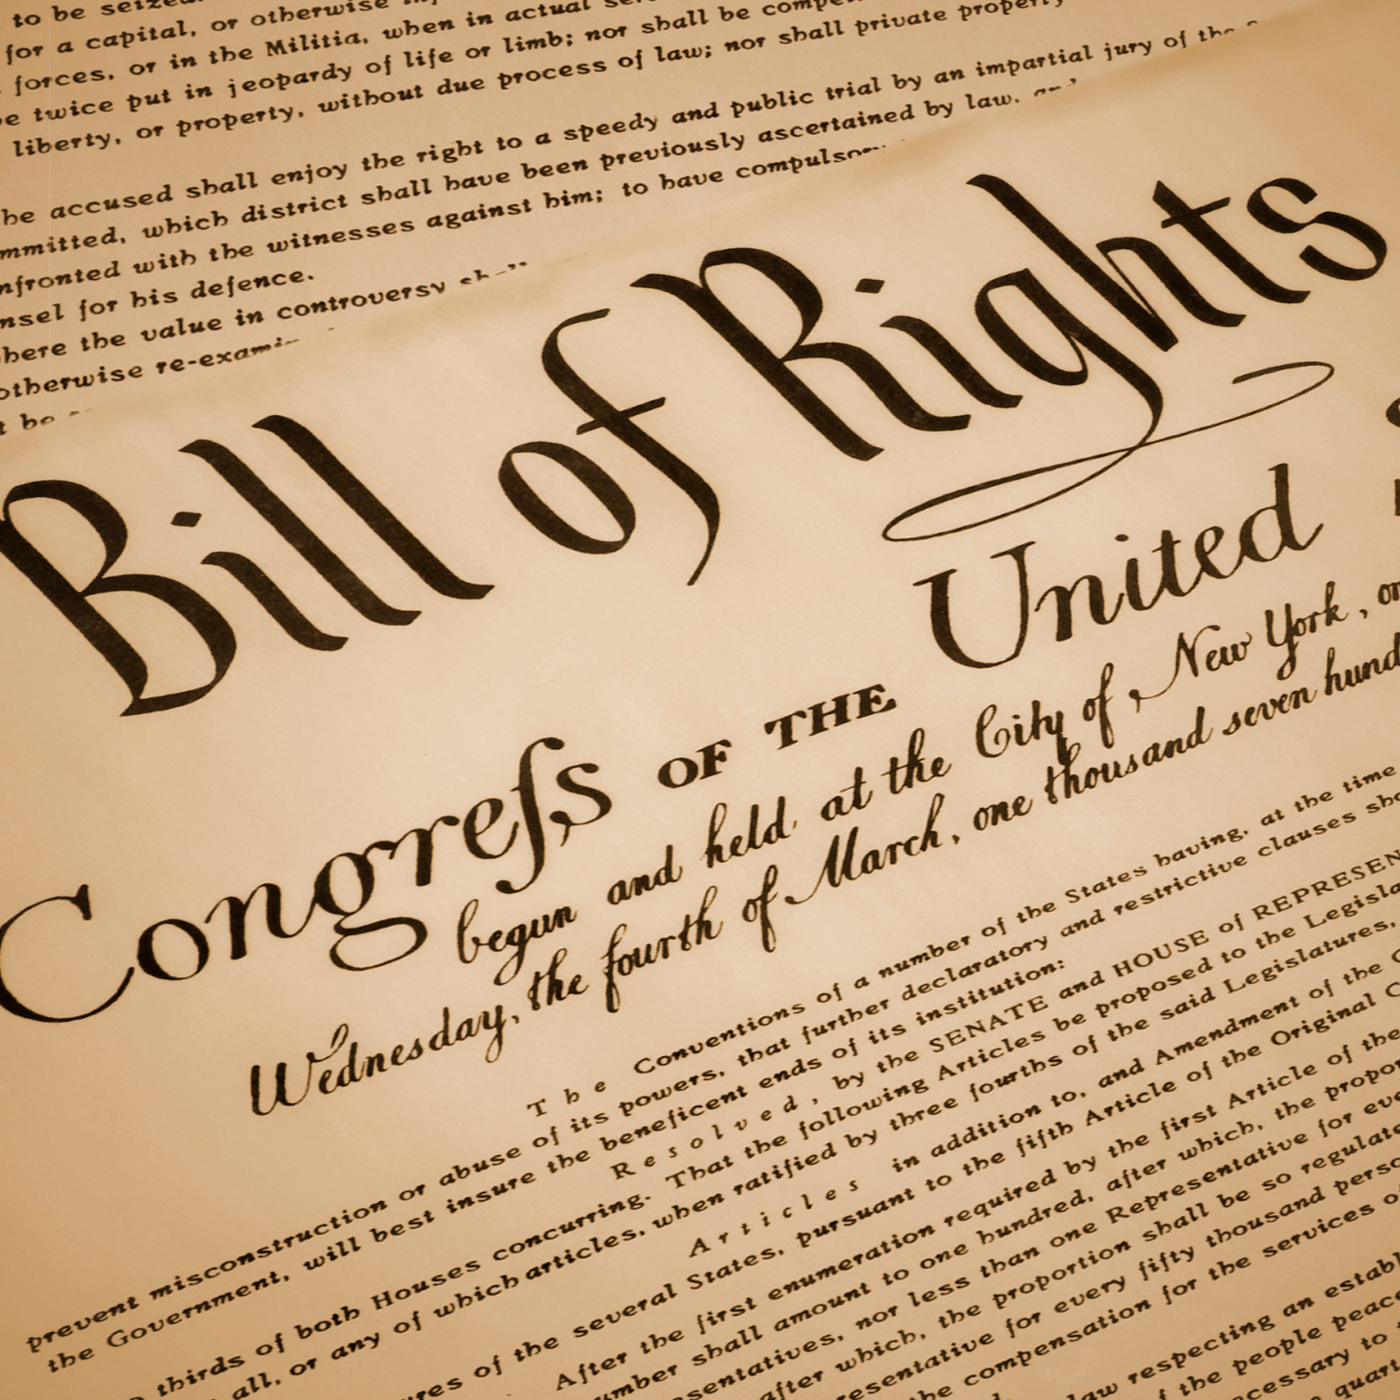 to be seized.
for a capital, or otherwise
forces, or in the Militia, when in actual
twice put in jeopardy of life or limb; nor shall be
liberty, or property, without due process of law; nor shall private property
he accused shall enjoy the right to a speedy and public trial by an impartial jury of the
mmitted, which district shall have been previously ascertained by law, and
nfronted with the witnesses against him; to have compulsory
nsel for his defence.
here the value in controversy shall
otherwise re-exami
t be
Bill of Rights
Congreſs OF THE United
begun and held at the City of New York, on
Wednesday, the fourth of March, one thousand seven hund
The Conventions of a number of the States having, at the time
prevent misconstruction or abuse of its powers, that further declaratory and restrictive clauses sho
the Government, will best insure the beneficent ends of its institution:
Resolved, by the SENATE and HOUSE of REPRESEN
thirds of both Houses concurring. That the following Articles be proposed to the Legisla
all, or any of which articles, when ratified by three fourths of the said Legislatures,
Articles in addition to, and Amendment of the
res of the several States, pursuant to the fifth Article of the Original C
After the first enumeration required by the first Article of the
umber shall amount to one hundred, after which, the propor
sentatives, nor less than one Representative for eve
after which, the proportion shall be so regulate
resentative for every fifty thousand perso
the compensation for the services of
law respecting an establ
the people peace
cessary to
quart